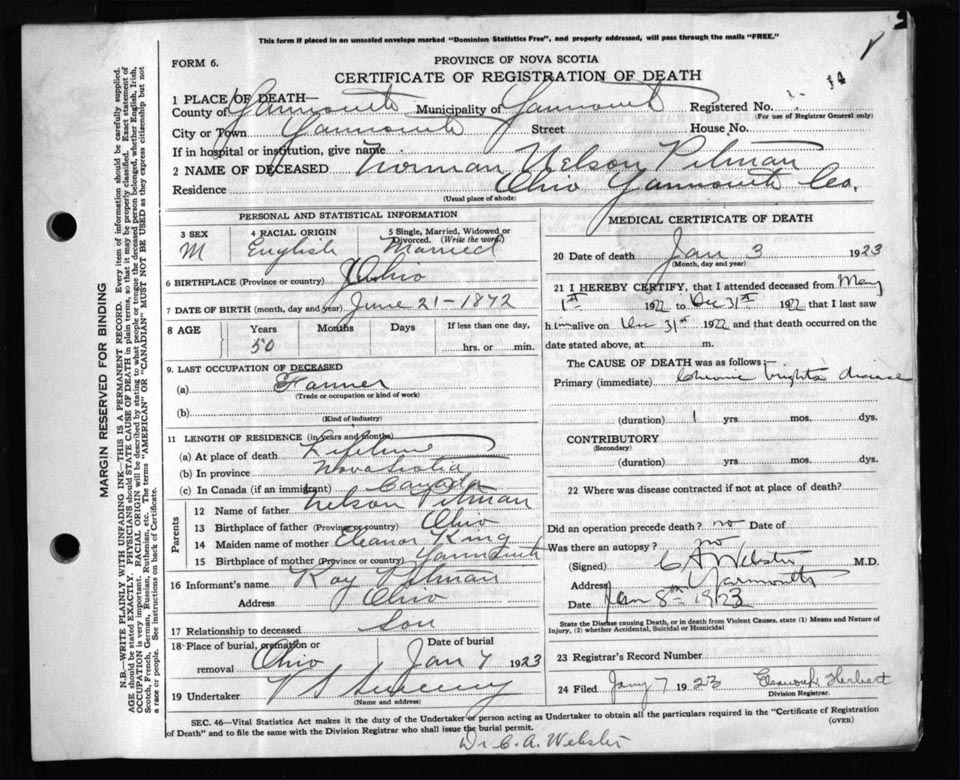 This form if placed in an unsealed envelope marked "Dominion Statistics Free", and properly addressed, will pass through the mails "FREE."
FORM 6.
PROVINCE OF NOVA SCOTIA
CERTIFICATE OF REGISTRATION OF DEATH
1 PLACE OF DEATH—
County of Yarmouth Municipality of Yarmouth Registered No.
(For use of Registrar General only)
City or Town Yarmouth Street House No.
If in hospital or institution, give name
2 NAME OF DECEASED Norman Nelson Pitman
Residence Ohio Yarmouth Co.
(Usual place of abode)
PERSONAL AND STATISTICAL INFORMATION
3 SEX 4 RACIAL ORIGIN 5 Single, Married, Widowed or Divorced. (Write the word)
M English Married
6 BIRTHPLACE (Province or country) Ohio
7 DATE OF BIRTH (month, day and year) June 21-1872
8 AGE Years Months Days If less than one day,
50 hrs. or min.
9. LAST OCCUPATION OF DECEASED
(a) Farmer
(Trade or occupation or kind of work)
(b)
(Kind of industry)
11 LENGTH OF RESIDENCE (in years and months)
(a) At place of death Lifetime
(b) In province Nova Scotia
(c) In Canada (if an immigrant) Canada
Parents
12 Name of father Nelson Pitman
13 Birthplace of father (Province or country) Ohio
14 Maiden name of mother Eleanor King
15 Birthplace of mother (Province or country) Yarmouth
16 Informant's name Roy Pitman
Address Ohio
17 Relationship to deceased Son
18 Place of burial, cremation or removal Ohio Date of burial Jan 7 1923
19 Undertaker V S Sweeny
(Name and address)
MEDICAL CERTIFICATE OF DEATH
20 Date of death Jan 3 1923
(Month, day and year)
21 I HEREBY CERTIFY, that I attended deceased from May
1st 1922 to Dec 31st 1922 that I last saw
him alive on Dec 31st 1922 and that death occurred on the
date stated above, at m.
The CAUSE OF DEATH was as follows:
Primary (immediate) Chronic brights disease
(duration) 1 yrs mos. dys.
CONTRIBUTORY
(Secondary)
(duration) yrs. mos. dys.
22 Where was disease contracted if not at place of death?
Did an operation precede death? no Date of
Was there an autopsy? no
(Signed) C A Webster M.D.
Address Yarmouth
Date Jan 8th 1923
State the Disease causing Death, or in death from Violent Causes, state (1) Means and Nature of
Injury, (2) whether Accidental, Suicidal or Homicidal
23 Registrar's Record Number
24 Filed Jany 7 1923 Eleanor Herbert
Division Registrar.
SEC. 46—Vital Statistics Act makes it the duty of the Undertaker or person acting as Undertaker to obtain all the particulars required in the "Certificate of Registration
of Death" and to file the same with the Division Registrar who shall issue the burial permit. (OVER)
Dr C. A. Webster
MARGIN RESERVED FOR BINDING
N.B.—WRITE PLAINLY WITH UNFADING INK—THIS IS A PERMANENT RECORD. Every item of information should be carefully supplied.
AGE should be stated EXACTLY. PHYSICIANS should STATE CAUSE OF DEATH in plain terms, so that it may be properly classified. Exact statement of
OCCUPATION is very important. RACIAL ORIGIN will be described by stating to what people or tongue the deceased person belonged, whether English, Irish,
Scotch, French, German, Russian, Ruthenian, etc. The terms "AMERICAN" OR "CANADIAN" MUST NOT BE USED as they express citizenship but not
a race or people. See instructions on back of Certificate.